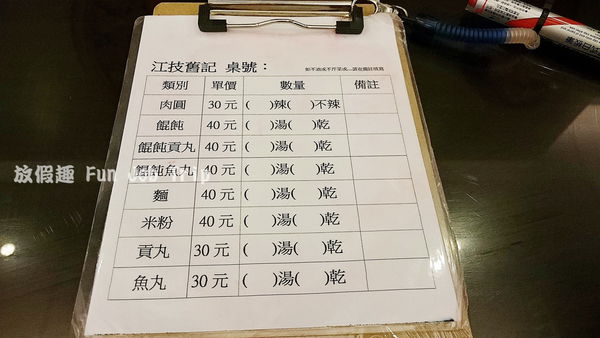 江技舊記 桌號：
類別 單價 數量 備註
肉圓 30元 ( )辣( )不辣
餛飩 40元 ( )湯( )乾
餛飩貢丸 40元 ( )湯( )乾
餛飩魚丸 40元 ( )湯( )乾
麵 40元 ( )湯( )乾
米粉 40元 ( )湯( )乾
貢丸 30元 ( )湯( )乾
魚丸 30元 ( )湯( )乾
放假趣 Fun Job Trip